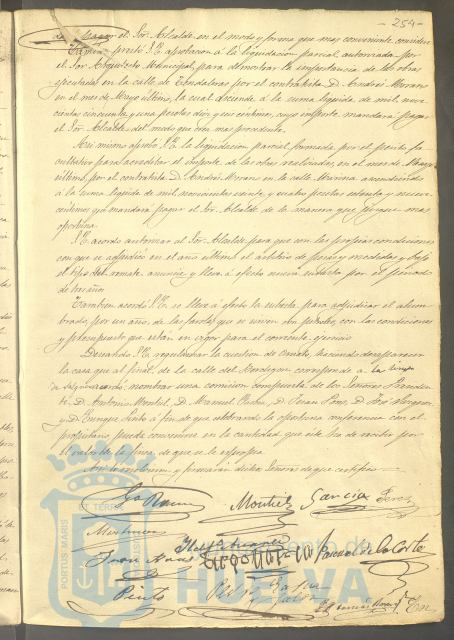 - 254 -
de pagar el Sor. Alcalde, en el modo y forma que mas conveniente considere
prestó S.E. aprobacion á la liquidacion parcial, autorizada por
el Sor. Arquitecto Municipal, para demostrar la importancia de las obras
ejecutadas en la calle de Tendaleras por el contratista D. Andrés Moreno
en el mes de Mayo último, la cual asciende á la suma líquida de mil, nove
cientas cincuenta y una pesetas diez y seis centimos, cuyo importe mandará pagar
el Sor. Alcalde del modo que crea mas procedente.
Asi mismo aprobó S.E. la liquidacion parcial formada por el perito fa
cultativo para acreditar el importe de las obras realizadas, en el mes de Mayo
último, por el contratista D. Andrés Moreno en la calle Marina ascendiendo
á la suma líquida de mil, novecientas veinte y cuatro pesetas setenta y nueve
centimos que mandará pagar el Sor. Alcalde de la manera que juzgue mas
oportuna.
S.E. acordó autorizar al Sor. Alcalde para que con las propias condiciones
con que se adjudicó en el año último el arbitrio de pesas y medidas y bajo
el tipo del remate, anuncie y lleve á efecto nueva subasta por el período
de tres años.
Tambien acordó S.E. se lleve á efecto la subasta para adjudicar el alum
brado, por un año, de las farolas que se sirven con petroleo, con las condiciones
y presupuesto que están en vigor para el corriente ejercicio.
Deseando S.E. regularizar la cuestion de Ornato haciendo desaparecer
la casa que al final de la calle del corresponde á
acordó nombrar una comision compuesta de los Señores Presiden
te, D. Antonio Montiel, D. Manuel D. Juan D. José
y D. Enrique Pinto á fin de que celebrando la oportuna conferencia con el
propietario, pueda convenirse en la cantidad que éste ha de recibir por
el valor de la finca de que se le expropia.
Asi lo acordaron y firmarán dichos Señores de que certifico.
Montiel García Perez
de la Corte
Pinto
PORTUS MARIS
ET TERRAE
Ayuntamiento de
HUELVA